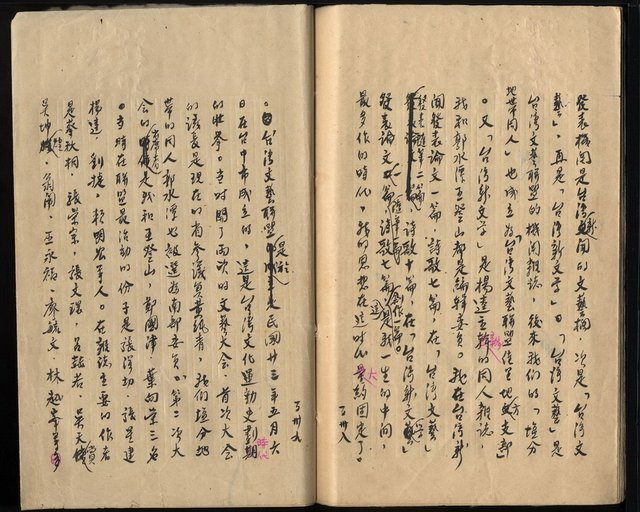 發表機關是台灣新聞的文藝欄，次是「台灣文
藝」，再是「台灣新文學」。「台灣文藝」是
台灣文藝聯盟的機關雜誌，後來我們的「塩分
地帶同人」也成立為「台灣文藝聯盟佳里地方支部
」。又「台灣新文學」是楊逵主幹的同人雜誌，
我和郭水潭王登山都是編輯委員。我在台灣新
聞發表論文一篇，詩歌七篇，在「台灣文藝」
發表隨筆二篇，詩歌十篇，在「台灣新文學」
發表論文一篇，隨筆一篇，詩歌七篇，創作一篇。這是我一生的中間，
最多作的時代，我的思想在這時代大約固定了。
了卅八
了卅九
。台灣文藝聯盟是於民國廿三年五月六
日在台中市成立的，這是台灣文化運動史劃期時代
的壯舉。當時開了兩次的文藝大會。首次大會
的議長是現在的省參議員黃純青，我們塩分地
帶的同人郭水潭也被選為南部委員。第二次大
會的出席者是我和王登山，鄭國津，葉向榮三名
。當時在聯盟最活動的份子是張深切，張星建
楊逵，劉捷，賴明弘等人。在雜誌主要的作者
是蔡秋桐，張榮宗，張文環，呂赫若，吳天賞
吳坤煌，翁鬧，巫永福，廖毓文，林越峰等多